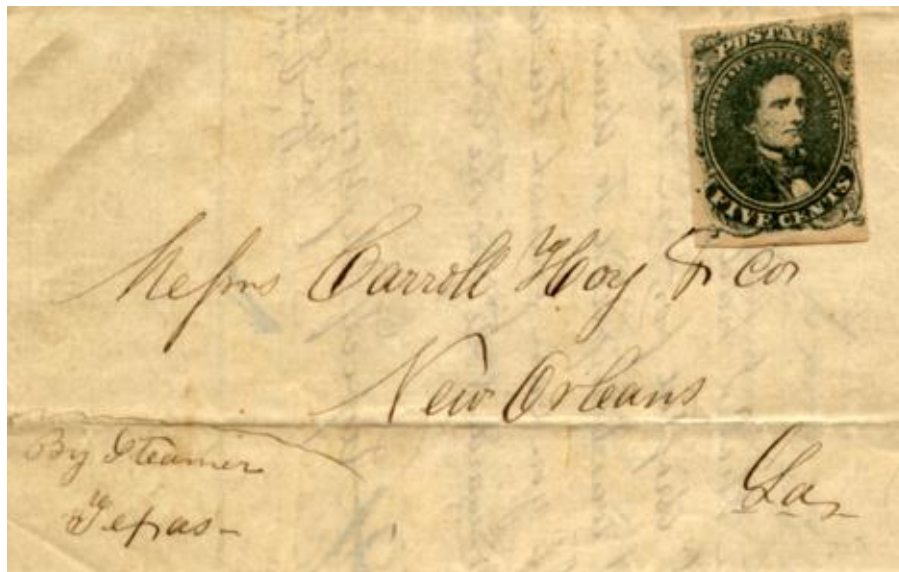 POSTAGE
CONFEDERATE STATES OF AMERICA
FIVE CENTS
Messrs Carroll Hoy & Co
New Orleans
La,
By Steamer
Texas-